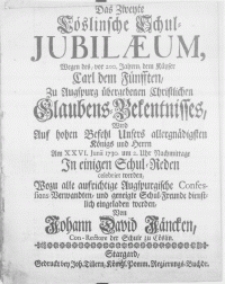 Das Zweyte
Cöslinsche Schul-
JUBILÆUM,
Wegen des, vor 200. Jahren, dem Käyser
Carl dem Fünfften,
Zu Augspurg übergebenen Christlichen
Glaubens-Bekentnisses,
Wird
Auf hohen Befehl Unsers allergnädigsten
Königs und Herrn
Am XXVI. Junii 1730. um 2. Uhr Nachmittage
In einigen Schul-Reden
celebriret werden,
Wozu alle aufrichtige Augspurgische Confes-
sions-Verwandten, und geneigte Schul-Freunde dienst-
lich eingeladen werden,
Von
Johann David Jäncken,
Con-Rectore der Schule zu Cößlin.
Stargard,
Gedruckt bey Joh. Tillern, Königl. Pomm. Regierungs-Buchdr.